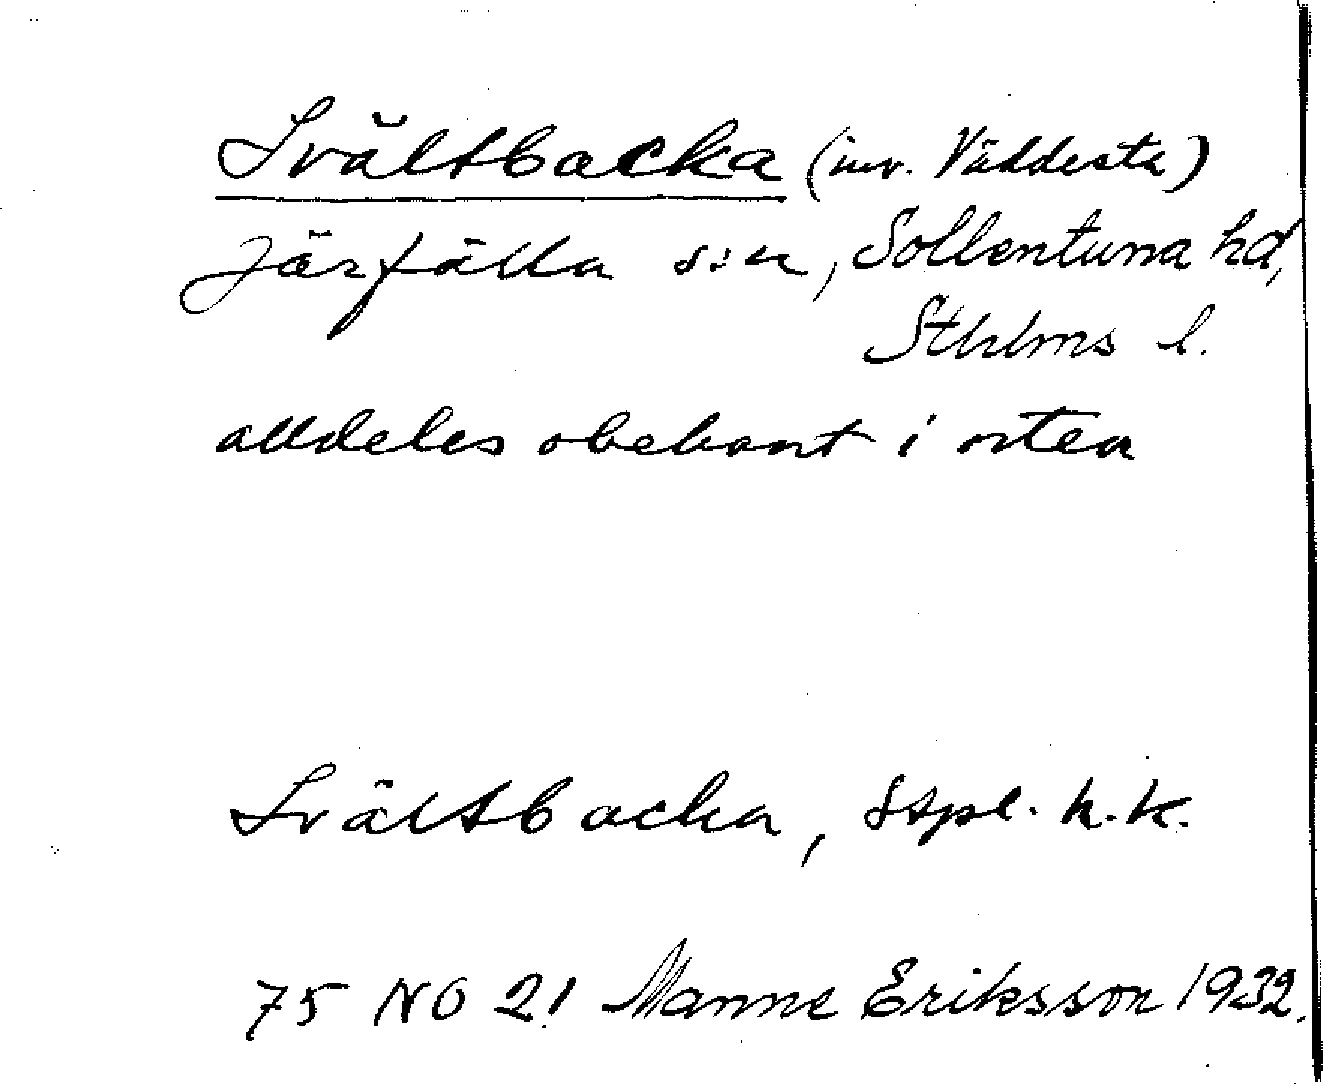 Svältbacka (inv. Väddesta)
Järfälla s:n, Sollentuna hd,
Sthlms l.
alldeles obekant i orten
Svältbacka, sspl. h.k.
75 NO 21 Manne Eriksson 1932.